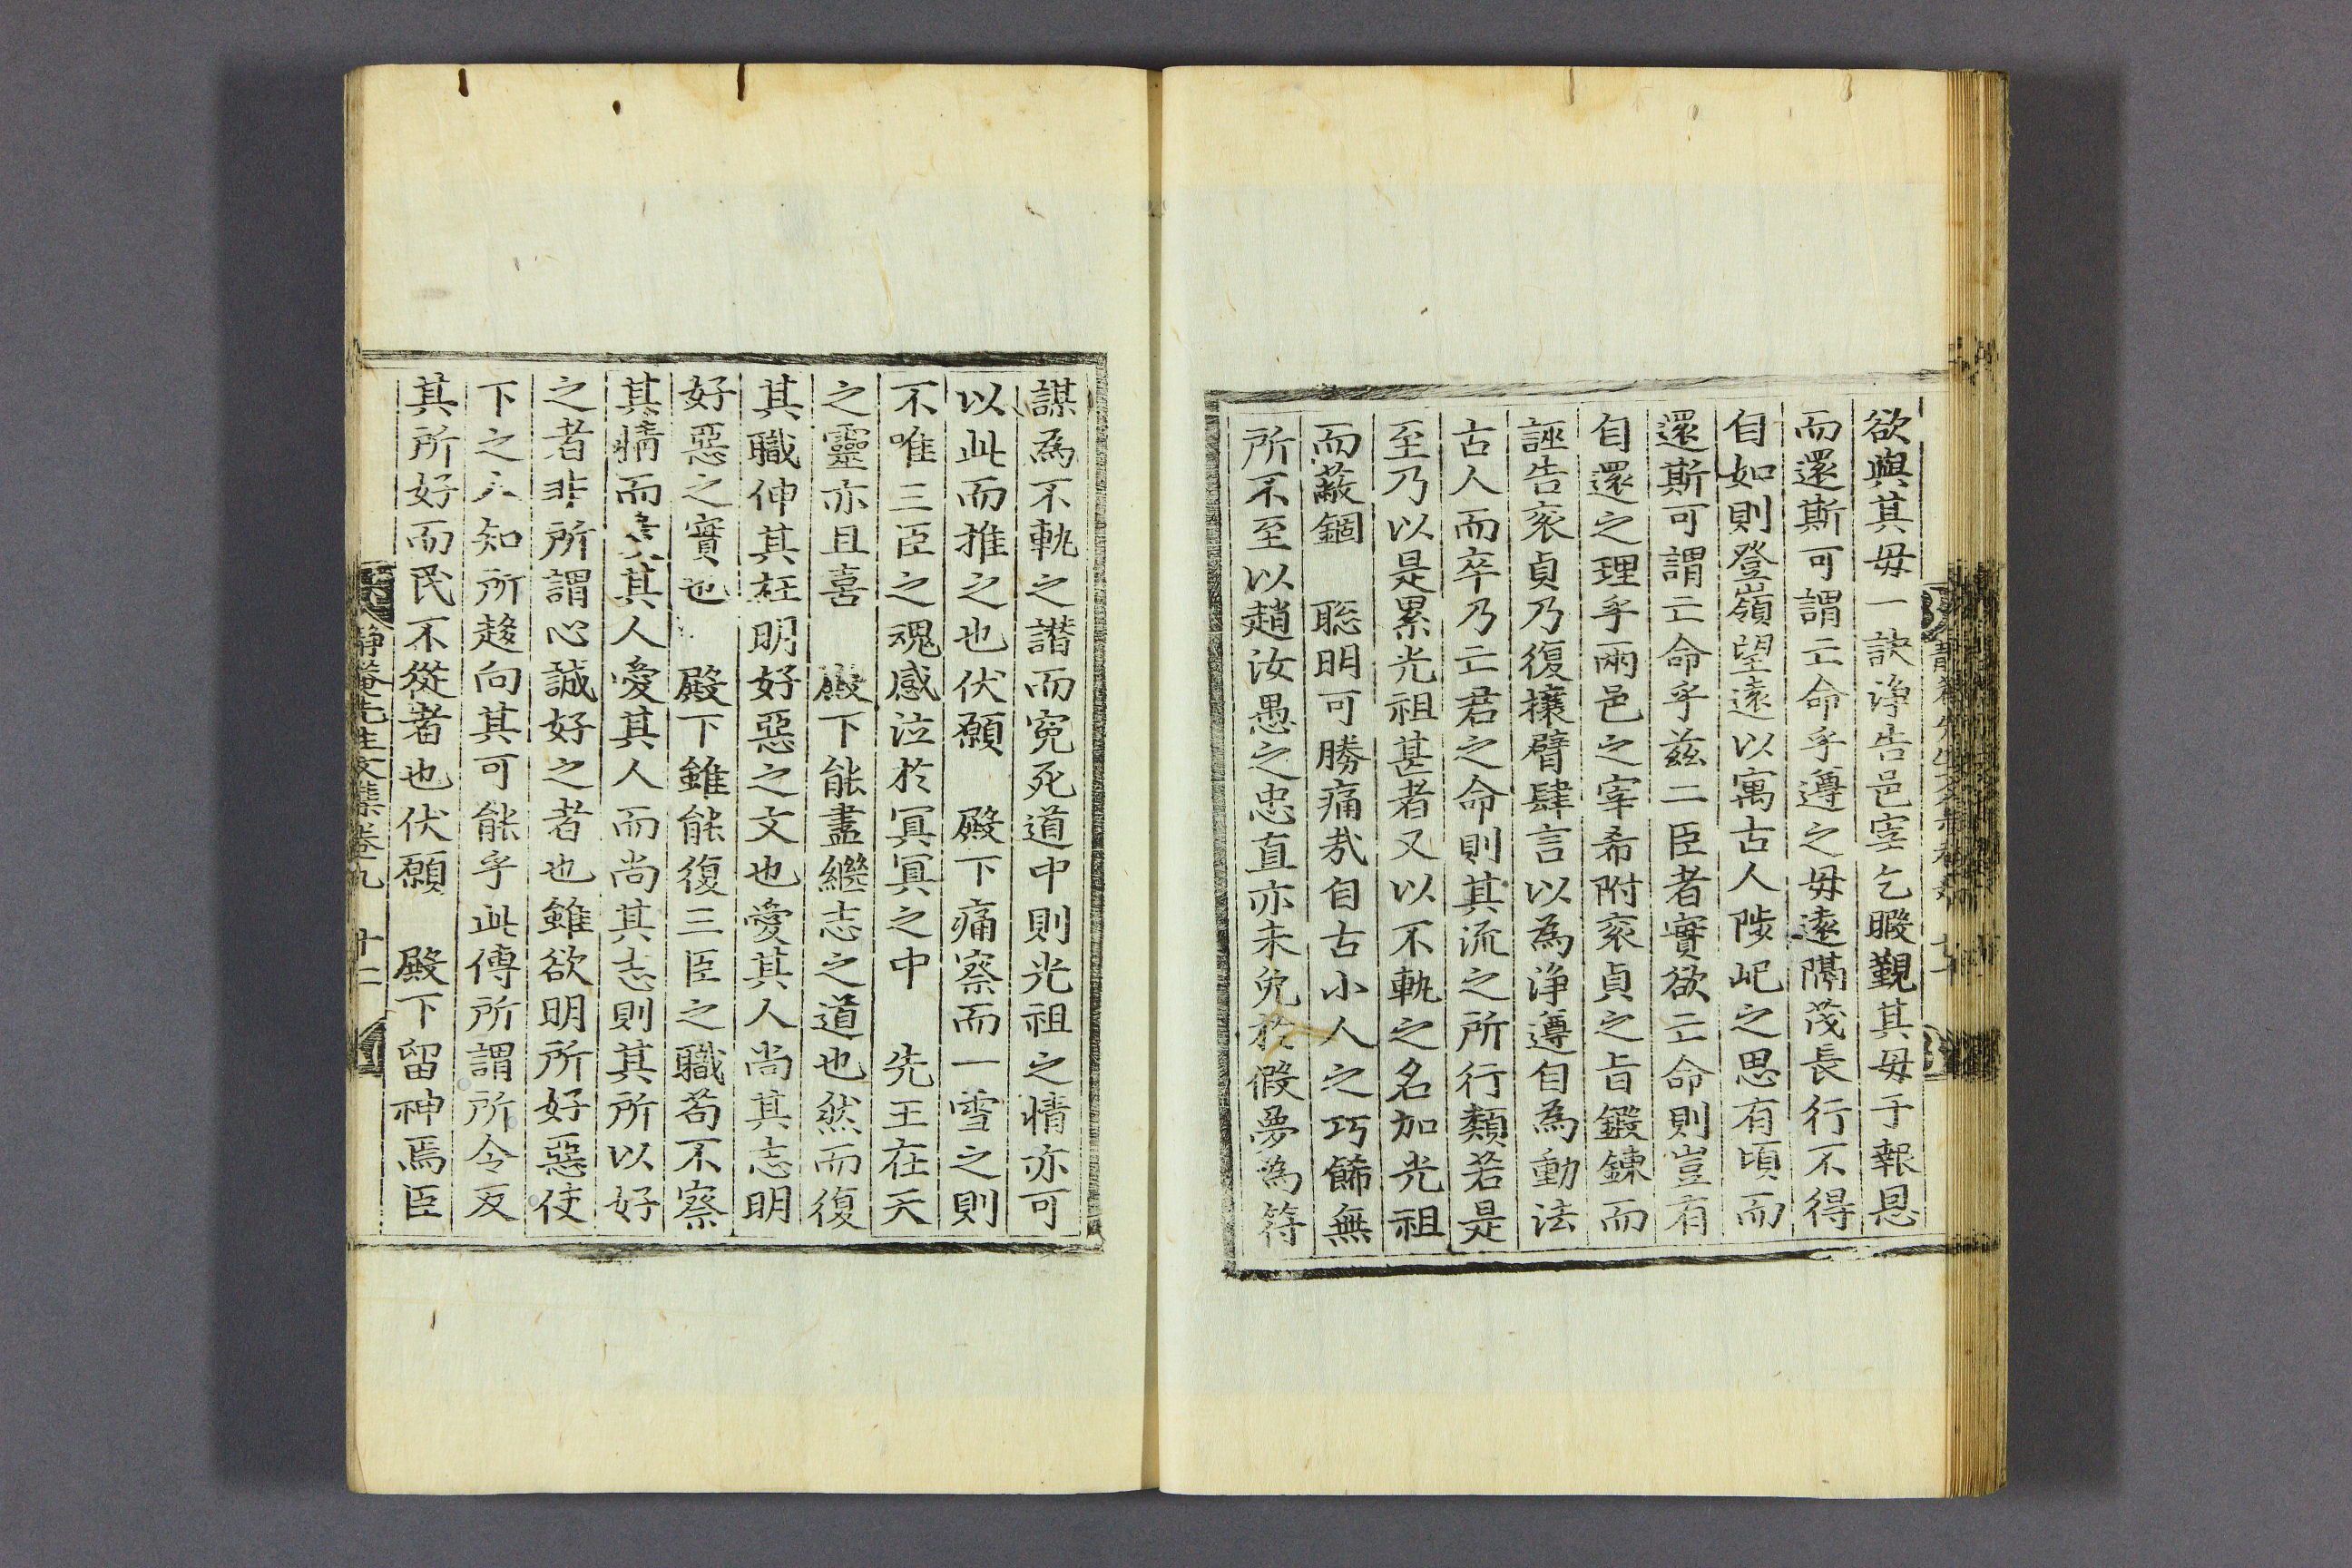 欲與其毋一訣淨告邑宰乞暇覲其毋于報恩
而還斯可謂亡命乎遵之毋遠隔茂長行不得
自如則登嶺望遠以寓古人陟屺之思有頃而
還斯可謂亡命乎茲二臣者實欲亡命則豈有
自還之理乎兩邑之宰希附衮貞之旨鍛鍊而
誣告衮貞乃復攘臂肆言以為淨遵自為動法
古人而卒乃亡君之命則其流之所行類若是
至乃以是累光祖甚者又以不軌之名加光祖
而蔽錮 聡明可勝痛㢤自古小人之巧餙無
所不至以趙汝愚之忠直亦未免於假夢為符
謀為不軌之譖而寃死道中則光祖之情亦可
以此而推之也伏願 殿下痛察而一雪之則
不唯三臣之魂感泣於冥冥之中 先王在天
之靈亦且喜 殿下能盡繼志之道也然而復
其職伸其枉明好惡之文也愛其人尚其志明
好惡之實也 殿下雖能復三臣之職苟不察
其情而其人愛其人而尚其志則其所以好
之者非所謂心誠好之者也雖欲明所好惡使
下之人知所趍向其可能乎此傳所謂所令反
其所好而民不從者也伏願 殿下留神焉臣
靜菴先生文集卷九 十二